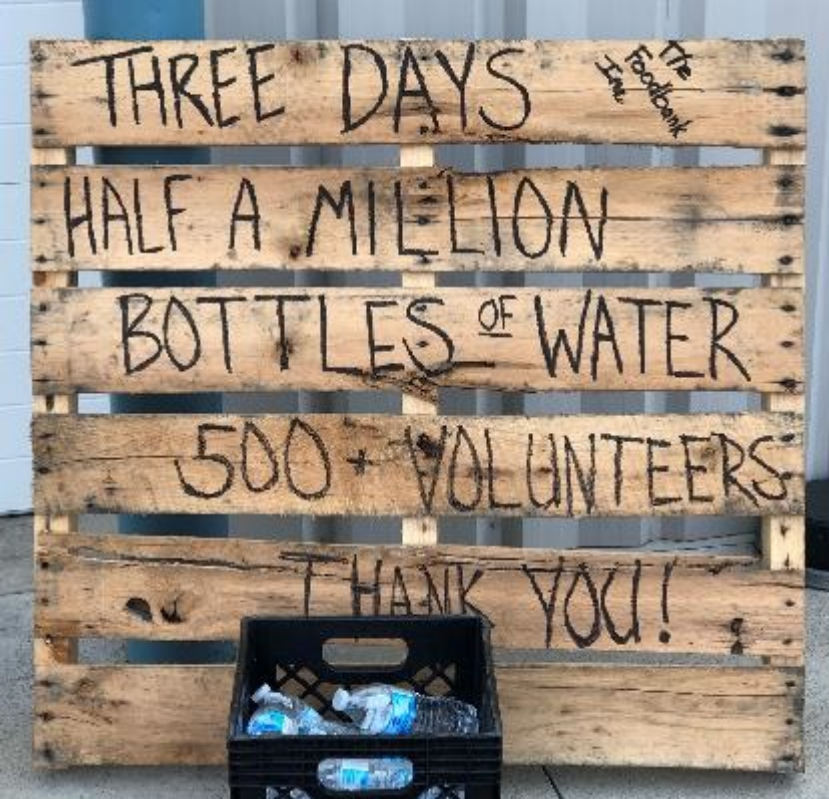 THREE DAYS
The
Foodbank
Inc
HALF A MILLION
BOTTLES OF WATER
500+ VOLUNTEERS
THANK YOU!